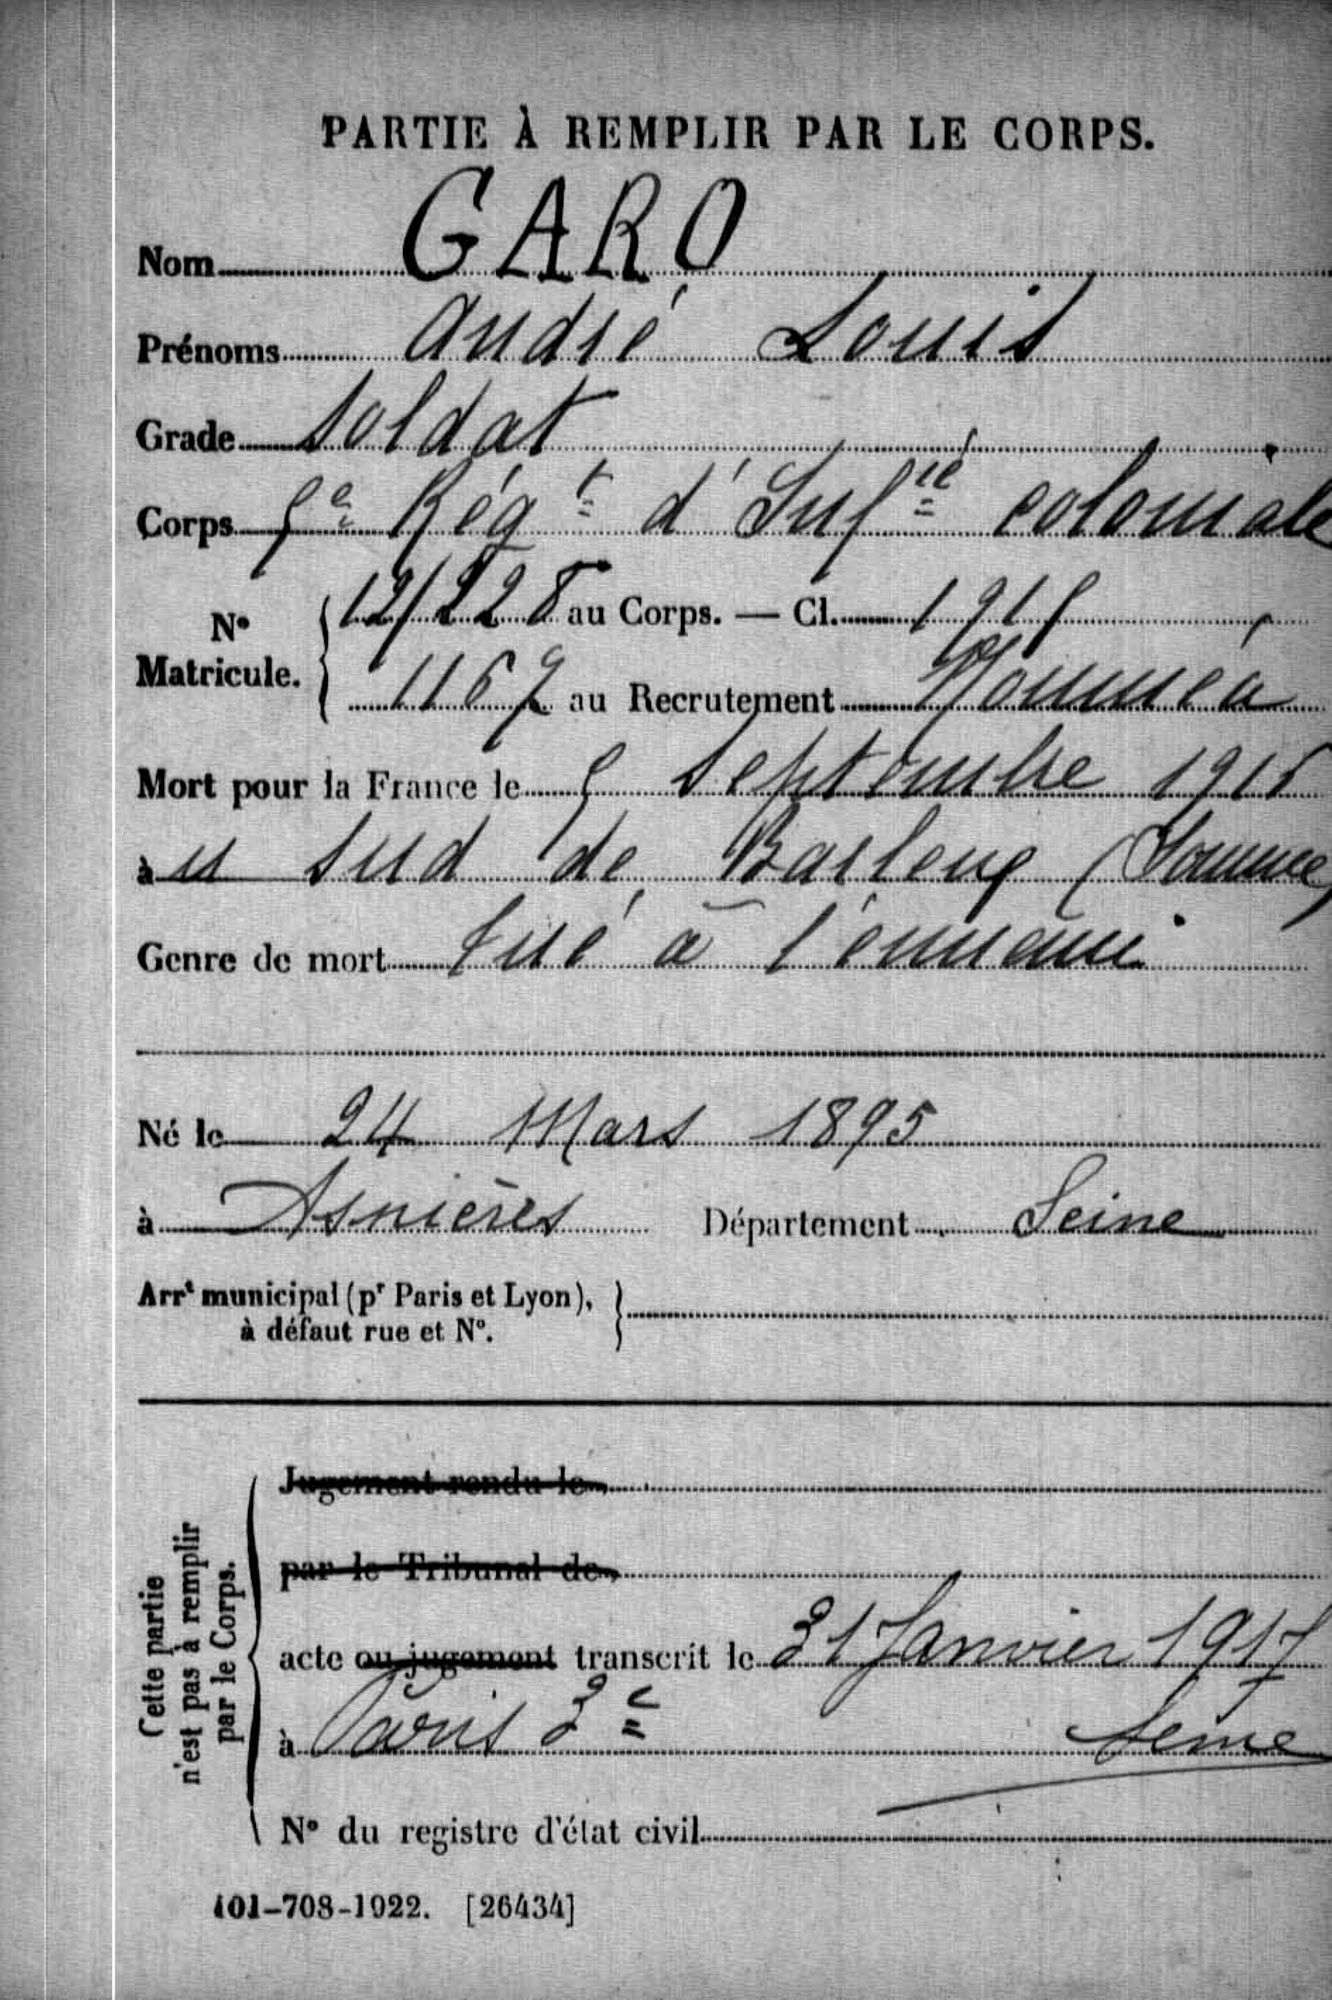 PARTIE À REMPLIR PAR LE CORPS.
Nom GARO
Prénoms André Louis
Grade Soldat
Corps 5e Régt d'Infie coloniale
No Matricule. 12/228 au Corps. — Cl. 1915
1167 au Recrutement Nouméa
Mort pour la France le 5 Septembre 1916
à u sud de Barleux (Somme)
Genre de mort tué à l'ennemi
Né le 24 Mars 1895
à Asnières Département Seine
Arrt municipal (pr Paris et Lyon),
à défaut rue et No.
Cette partie
n'est pas à remplir
par le Corps.
Jugement rendu le
par le Tribunal de
acte ou jugement transcrit le 31 Janvier 1917
à Paris 3e Seine
No du registre d'état civil
101-708-1922. [26434]